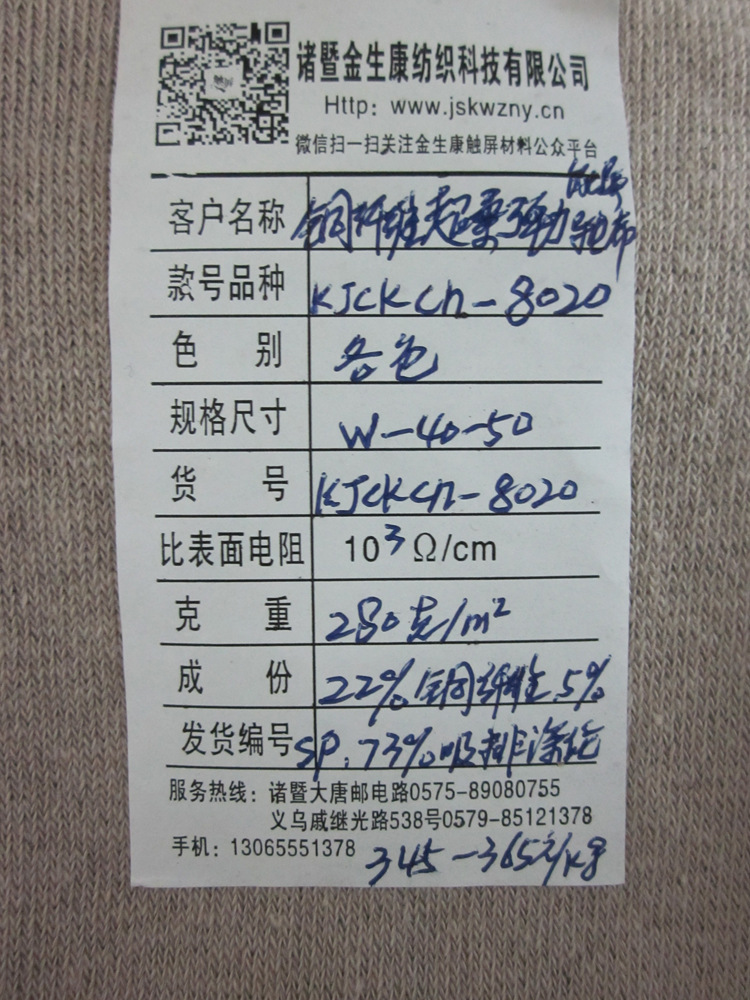 诸暨金生康纺织科技有限公司
Http: www.jskwzny.cn
微信扫一扫关注金生康触屏材料公众平台
客户名称 铜纤维超柔强力 布
款号品种 KJCKCn-8020
色 别 各色
规格尺寸 W-40-50
货 号 KJCKCn-8020
比表面电阻 10³Ω/cm
克 重 280克/m²
成 份 22%铜纤维 5%
发货编号 SP. 73%吸排涤纶
服务热线: 诸暨大唐邮电路0575-89080755
义乌戚继光路538号0579-85121378
手机: 13065551378 345-365元/kg